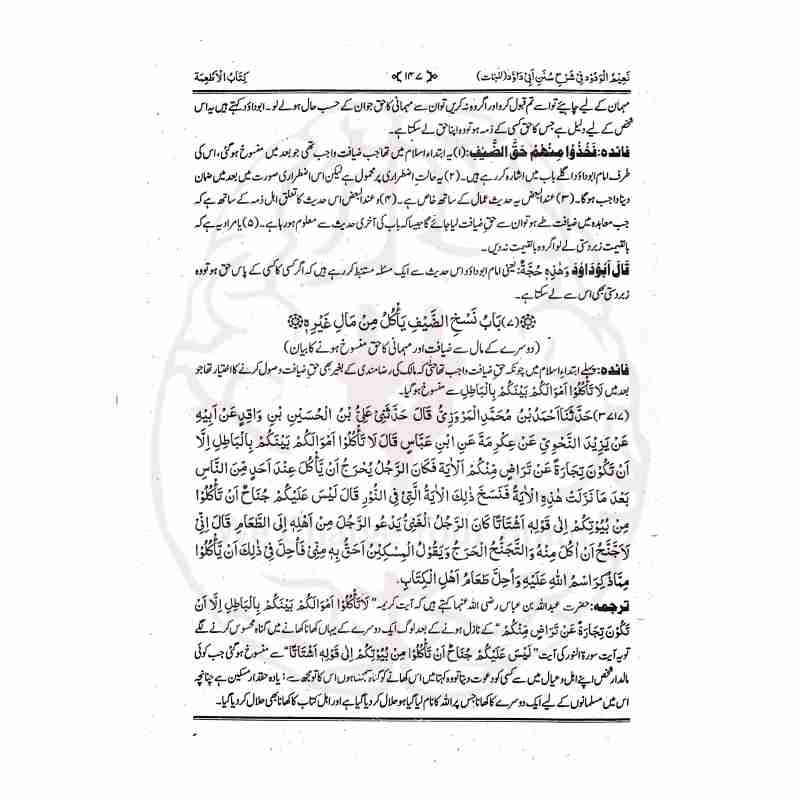 نَعِیْمُ الْوَدُوْد فِیْ شَرْحِ سُنَنِ اَبِیْ دَاوٗد (للبنات) ۱۴۷ کِتَابُ الْاَطْعِمَة
مہمان کے لیے چاہیئے تو اسے تم قبول کرو اور اگر وہ نہ کریں تو ان سے مہمانی کا حق جو ان کے حسب حال ہو لے لو۔ ابوداؤد کہتے ہیں یہ اس
شخص کے لیے دلیل ہے جس کا حق کسی کے ذمہ ہو تو وہ اپنا حق لے سکتا ہے۔
فائدہ: فَخُذُوْا مِنْهُمْ حَقَّ الضَّیْفِ: (۱) یہ ابتداء اسلام میں تھا جب ضیافت واجب تھی جو بعد میں منسوخ ہو گئی، اس کی
طرف امام ابوداؤد اگلے باب میں اشارہ کر رہے ہیں۔ (۲) یہ حالتِ اضطراری پر محمول ہے لیکن اس اضطراری صورت میں بعد میں ضمان
دینا واجب ہوگا۔ (۳) عند البعض یہ حدیث عمال کے ساتھ خاص ہے۔ (۴) وعند البعض اس حدیث کا تعلق اہل ذمہ کے ساتھ ہے کہ
جب معاہدہ میں ضیافت طے ہو تو ان سے حقِ ضیافت لیا جائے گا جیسا کہ باب کی آخری حدیث سے معلوم ہو رہا ہے۔ (۵) یا مراد یہ ہے کہ
بالقیمت زبردستی لے لو اگر وہ بالقیمت نہ دیں۔
قَالَ اَبُوْدَاوٗدَ وَهٰذِهٖ حُجَّةٌ: یعنی امام ابوداؤد اس حدیث سے ایک مسئلہ مستنبط کر رہے ہیں کہ اگر کسی کا کسی کے پاس حق ہو تو وہ
زبردستی بھی اس سے لے سکتا ہے۔
(۷) بَابُ نَسْخِ الضَّیْفِ یَأْکُلُ مِنْ مَالِ غَیْرِهٖ
(دوسرے کے مال سے ضیافت اور مہمانی کا حق منسوخ ہونے کا بیان)
فائدہ: پہلے ابتداء اسلام میں چونکہ حقِ ضیافت واجب تھا حتیٰ کہ مالک کی رضامندی کے بغیر بھی حقِ ضیافت وصول کرنے کا اختیار تھا جو
بعد میں لَا تَأْکُلُوْا اَمْوَالَکُمْ بَیْنَکُمْ بِالْبَاطِلِ سے منسوخ ہو گیا۔
(۳۷۱۷) حَدَّثَنَا اَحْمَدُ بْنُ مُحَمَّدِ الْمَرْوَزِیُّ قَالَ حَدَّثَنِیْ عَلِیُّ بْنُ الْحُسَیْنِ بْنِ وَاقِدٍ عَنْ اَبِیْهِ
عَنْ یَزِیْدَ النَّحْوِیِّ عَنْ عِکْرِمَةَ عَنِ ابْنِ عَبَّاسٍ قَالَ لَا تَأْکُلُوْا اَمْوَالَکُمْ بَیْنَکُمْ بِالْبَاطِلِ اِلَّا
اَنْ تَکُوْنَ تِجَارَةً عَنْ تَرَاضٍ مِنْکُمْ اَلْاٰیَةَ فَکَانَ الرَّجُلُ یُحْرَجُ اَنْ یَّأْکُلَ عِنْدَ اَحَدٍ مِّنَ النَّاسِ
بَعْدَ مَا نَزَلَتْ هٰذِهِ الْاٰیَةُ فَنَسَخَ ذٰلِكَ الْاٰیَةُ الَّتِیْ فِی النُّوْرِ قَالَ لَیْسَ عَلَیْکُمْ جُنَاحٌ اَنْ تَأْکُلُوْا
مِنْ بُیُوْتِکُمْ اِلٰی قَوْلِهٖ اَشْتَاتًا کَانَ الرَّجُلُ الْغَنِیُّ یَدْعُو الرَّجُلَ مِنْ اَهْلِهٖ اِلَی الطَّعَامِ قَالَ اِنِّیْ
لَاَجَّنَّحُ اَنْ اٰکُلَ مِنْهُ وَالتَّجَنُّحُ الْحَرَجُ وَیَقُوْلُ الْمِسْکِیْنُ اَحَقُّ بِهٖ مِنِّیْ فَاُحِلَّ فِیْ ذٰلِكَ اَنْ یَّأْکُلُوْا
مِمَّا ذُکِرَ اسْمُ اللهِ عَلَیْهِ وَاُحِلَّ طَعَامُ اَهْلِ الْکِتَابِ.
ترجمہ: حضرت عبداللہ بن عباس رضی اللہ عنہما کہتے ہیں کہ آیت کریمہ "لَا تَأْکُلُوْا اَمْوَالَکُمْ بَیْنَکُمْ بِالْبَاطِلِ اِلَّا اَنْ
تَکُوْنَ تِجَارَةً عَنْ تَرَاضٍ مِنْکُمْ" کے نازل ہونے کے بعد لوگ ایک دوسرے کے یہاں کھانا کھانے میں گناہ محسوس کرنے لگے
تو یہ آیت سورۃ النور کی آیت "لَیْسَ عَلَیْکُمْ جُنَاحٌ اَنْ تَأْکُلُوْا مِنْ بُیُوْتِکُمْ اِلٰی قَوْلِهٖ اَشْتَاتًا" سے منسوخ ہو گئی جب کوئی
مالدار شخص اپنے اہل و عیال میں سے کسی کو دعوت دیتا تو وہ کہتا میں اس کھانے کو گناہ سمجھتا ہوں اس کا تو مجھ سے زیادہ حقدار مسکین ہے چنانچہ
اس میں مسلمانوں کے لیے ایک دوسرے کا کھانا جس پر اللہ کا نام لیا گیا ہو حلال کر دیا گیا ہے اور اہل کتاب کا کھانا بھی حلال کر دیا گیا۔